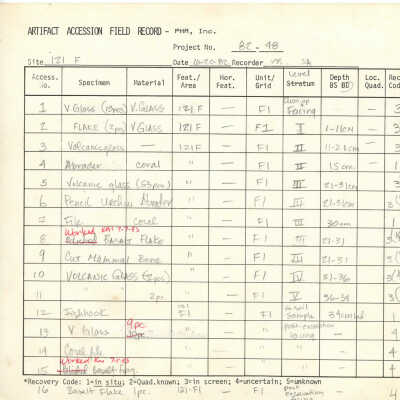 ARTIFACT ACCESSION FIELD RECORD - PHR, Inc.
Project No. 82-98
Site 121 F Date Recorder
Access. No. Specimen Material Feat./Area Hor. Feat. Unit/Grid Level Stratum Depth BS BD Loc. Quad. Reco Code
1 V. Glass V. GLASS 121 F — F1 Facing — — 3
2 FLAKE (2pcs) V. Glass 121 F — F1 I 1-11cm — 3
3 Volcanic glass — 121 F — F1 II 11-21cm — 3
4 Abrader coral " — F1 II 15cm — 1
5 Volcanic glass (53 pcs) " — F1 III 21-31cm — 3
6 Pencil Urchin Abrader " — F1 III 21-31cm — 3
7 File coral " — F1 III 30cm — 1
Worked
8 Basalt Flake " — F1 III 21-31 — 3
9 Cut Mammal Bone " — F1 III 21-31 — 3
10 Volcanic Glass (2pcs) " — F1 IV 31-36 — 3
11 " 2pc. " — F1 V 36-54 — 3
12 Fishhook 121 F1 — F1 Sample — 1
13 V. Glass 9pc. " — " post-excavation — 4
14 Coral file " — " " — 4
Worked
15 Basalt " — " " — 4
*Recovery Code: 1=in situ; 2=Quad.known; 3=in screen; 4=uncertain; 5=unknown
16 Basalt Flake 1pc. 121-F1 — F1 post excavation — 4